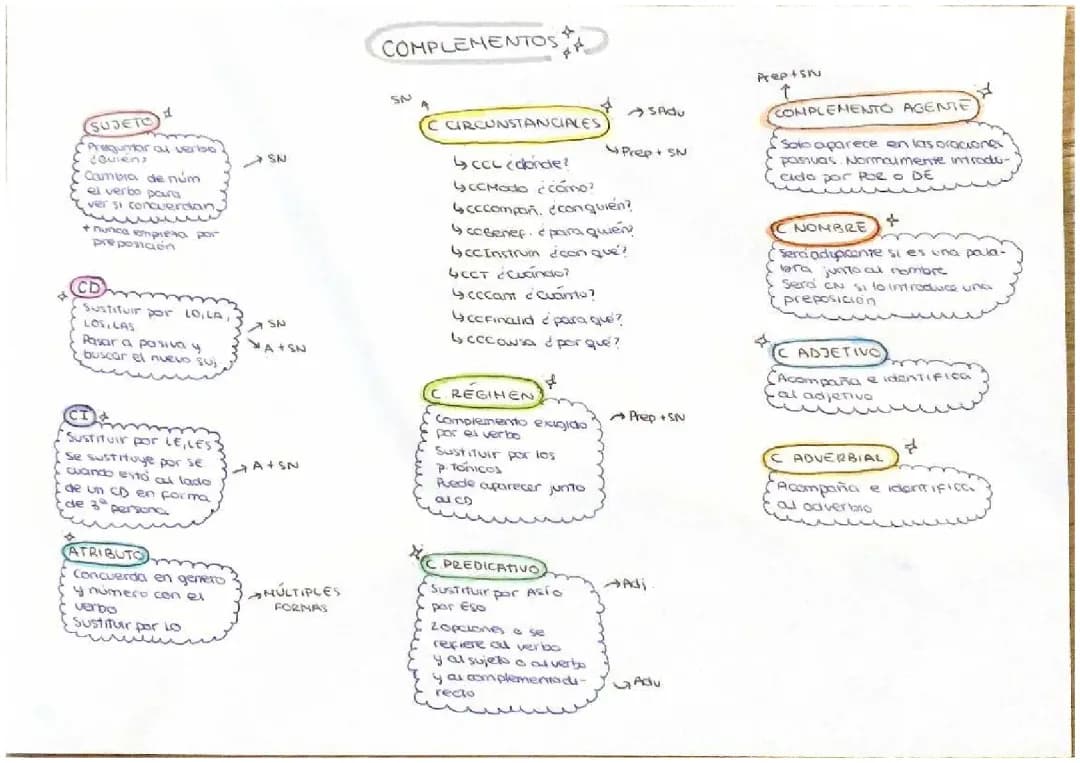 COMPLEMENTOS
SUJETO
Preguntar al verbo
¿Quién?
Cambia de núm
el verbo para
ver si concuerdan
→ SN
+ nunca empieza por
preposición
CD
Sustituir por LO, LA,
LOS, LAS
Pasar a pasiva y
buscar el nuevo suj
→ SN
A + SN
CI
Sustituir por LE, LES
Se sustituye por SE
cuando está al lado
de un CD en forma
de 3ª persona
→ A + SN
ATRIBUTO
Concuerda en genero
y número con el
verbo
Sustituir por LO
→ MÚLTIPLES
FORMAS
SN
C CIRCUNSTANCIALES
→ SAdv
Prep + SN
↳ CCL ¿dónde?
↳ CCModo ¿cómo?
↳ CCCompañ. ¿con quién?
↳ CCBenef. ¿para quién?
↳ CCInstrum ¿con qué?
↳ CCT ¿Cuándo?
↳ CCCant ¿Cuánto?
↳ CCFinalid ¿para qué?
↳ CCCausa ¿por qué?
C. RÉGIMEN
Complemento exigido
por el verbo
Sustituir por los
p. Tónicos
Puede aparecer junto
al CD
→ Prep + SN
C PREDICATIVO
Sustituir por ASÍ o
por ESO
2 opciones o se
refiere al verbo
y al sujeto o al verbo
y al complemento di-
recto
→ Adj
Adv
Prep + SN
COMPLEMENTO AGENTE
Solo aparece en las oraciones
pasivas. Normalmente introdu-
cido por POR o DE
C NOMBRE
Será adyacente si es una pala-
bra junto al nombre
Será CN si lo introduce una
preposición
C ADJETIVO
Acompaña e identifica
al adjetivo
C ADVERBIAL
Acompaña e identifica
al adverbio